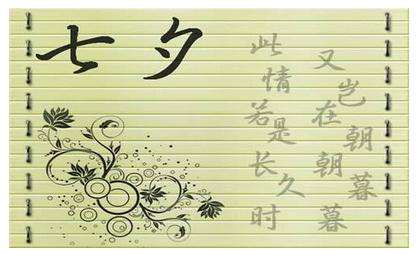 七夕
此情若是长久时
又岂在朝朝暮暮